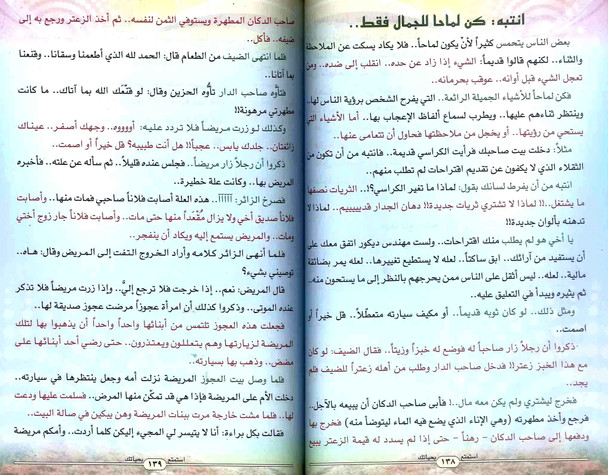 انتبه: كن لماحا للجمال فقط..
بعض الناس يتحمس كثيراً لأن يكون لماحاً.. فلا يكاد يسكت عن الملاحظة
والثناء.. لكنهم قالوا قديماً: الشيء إذا زاد عن حده.. انقلب إلى ضده.. ومن
تعجل الشيء قبل أوانه.. عوقب بحرمانه..
فكن لماحاً للأشياء الجميلة الرائعة.. التي يفرح الشخص برؤية الناس لها..
وينتظر ثناءهم عليها.. ويطرب لسماع ألفاظ الإعجاب بها.. أما الأشياء التي
يستحي من رؤيتها.. أو يخجل من ملاحظتها فحاول أن تتعامى عنها..
مثلاً: دخلت بيت صاحبك فرأيت الكراسي قديمة.. فانتبه من أن تكون من
الثقلاء الذي لا يكفون عن تقديم اقتراحات لم تطلب منهم..
انتبه من أن يفرط لسانك بقول: لماذا ما تغير الكراسي؟!.. الثريات نصفها
ما يشتغل..!! لماذا لا تشتري ثريات جديدة!! دهان الجدار قديييييم.. لماذا لا
تدهنه بألوان جديدة!!
يا أخي هو لم يطلب منك اقتراحات.. ولست مهندس ديكور اتفق معك على
أن يستفيد من آرائك.. ابق ساكتاً.. لعله لا يستطيع تغييرها.. لعله يمر بضائقة
مالية.. لعله.. ليس أثقل على الناس ممن يحرجهم بالنظر إلى ما يستحون منه..
ثم يثيره ويبدأ في التعليق عليه..
ومثل ذلك.. لو كان ثوبه قديماً.. أو مكيف سيارته متعطلاً.. قل خيراً أو
اصمت..
ذكروا أن رجلاً زار صاحباً له فوضع له خبزاً وزيتاً.. فقال الضيف: لو كان
مع هذا الخبز زعتر!! فدخل صاحب الدار وطلب من أهله زعتراً للضيف فلم
يجد..
فخرج ليشتري ولم يكن معه مال..! فأبى صاحب الدكان أن يبيعه بالآجل..
فرجع وأخذ مطهرته (وهي الإناء الذي يضع فيه الماء ليتوضأ منه) فخرج بها
ودفعها إلى صاحب الدكان - رهناً - حتى إذا لم يسدد له قيمة الزعتر يبيع
استمتع ١٣٨ بحياتك
صاحب الدكان المطهرة ويستوفي الثمن لنفسه.. ثم أخذ الزعتر ورجع به إلى
ضيفه.. فأكل..
فلما انتهى الضيف من الطعام قال: الحمد لله الذي أطعمنا وسقانا.. وقنعنا
بما آتانا..
فتأوّه صاحب الدار تأوُّه الحزين وقال: لو قنّعك الله بما آتاك.. ما كانت
مطهرتي مرهونة!!
وكذلك لو زرت مريضاً فلا تردد عليه: أووووه.. وجهك أصفر.. عيناك
زائغتان.. جلدك يابس.. عجباً!! هل أنت طبيبه؟ قل خيراً أو اصمت..
ذكروا أن رجلاً زار مريضاً.. فجلس عنده قليلاً.. ثم سأله عن علته.. فأخبره
المريض بها.. وكانت علة خطيرة..
فصرخ الزائر: آآآآآ.. هذه العلة أصابت فلاناً صاحبي فمات منها.. وأصابت
فلاناً صديق أخي ولا يزال مُقْعَداً منها حتى مات.. وأصابت فلاناً جار زوج أختي
ومات.. والمريض يستمع إليه ويكاد أن ينفجر..
فلما أنهى الزائر كلامه وأراد الخروج التفت إلى المريض وقال: هاه..
توصيني بشيء؟
قال المريض: نعم.. إذا خرجت فلا ترجع إليَّ.. وإذا زرت مريضاً فلا تذكر
عنده الموتى.. وذكروا كذلك أن امرأة عجوزاً مرضت عجوز صديقة لها..
فجعلت هذه العجوز تلتمس من أبنائها واحداً واحداً أن يذهبوا بها لتلك
المريضة لزيارتها وهم يتعللون ويعتذرون.. حتى رضي أحد أبنائها على
مضض.. وذهب بها بسيارته..
فلما وصل بيت العجوز المريضة نزلت أمه وجعل ينتظرها في سيارته..
دخلت الأم على المريضة فإذا هي قد تمكّن منها المرض.. فسلمت عليها ودعت
لها.. فلما مشت خارجة مرت ببنات المريضة وهن يبكين في صالة البيت..
فقالت بكل براءة: أنا لا يتيسر لي المجيء إليكن كلما أردت.. وأمكم مريضة
استمتع ١٣٩ بحياتك